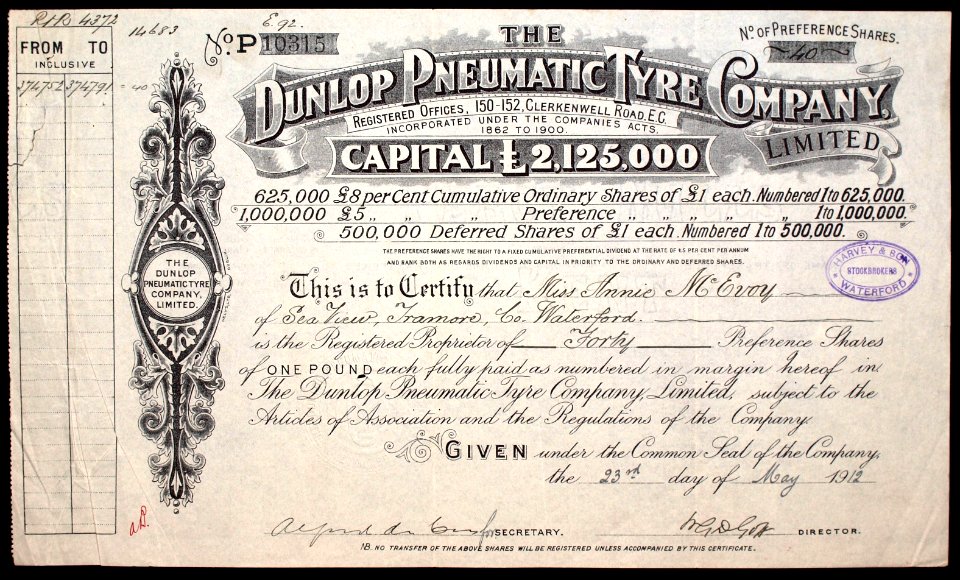 RHB 4372
14683
E.92.
No. P 10315
No. OF PREFERENCE SHARES.
40
FROM TO
INCLUSIVE
374752 374791 = 40
THE
DUNLOP PNEUMATIC TYRE COMPANY,
LIMITED.
REGISTERED OFFICES, 150-152, CLERKENWELL ROAD, E.C.
INCORPORATED UNDER THE COMPANIES ACTS,
1862 TO 1900.
CAPITAL £2,125,000
625,000 £8 per Cent Cumulative Ordinary Shares of £1 each. Numbered 1 to 625,000.
1,000,000 £5 „ „ „ Preference „ „ „ „ „ 1 to 1,000,000.
500,000 Deferred Shares of £1 each. Numbered 1 to 500,000.
THE PREFERENCE SHARES HAVE THE RIGHT TO A FIXED CUMULATIVE PREFERENTIAL DIVIDEND AT THE RATE OF £5 PER CENT PER ANNUM
AND RANK BOTH AS REGARDS DIVIDENDS AND CAPITAL IN PRIORITY TO THE ORDINARY AND DEFERRED SHARES.
HARVEY & SON
STOCKBROKERS
WATERFORD
THE
DUNLOP
PNEUMATIC TYRE
COMPANY,
LIMITED.
This is to Certify that Miss Annie McEvoy
of Sea View, Tramore, Co. Waterford.
is the Registered Proprietor of Forty Preference Shares
of ONE POUND each fully paid as numbered in margin hereof in
The Dunlop Pneumatic Tyre Company, Limited, subject to the
Articles of Association and the Regulations of the Company.
GIVEN under the Common Seal of the Company,
the 23rd day of May 1912
SECRETARY.
DIRECTOR.
NB. NO TRANSFER OF THE ABOVE SHARES WILL BE REGISTERED UNLESS ACCOMPANIED BY THIS CERTIFICATE.